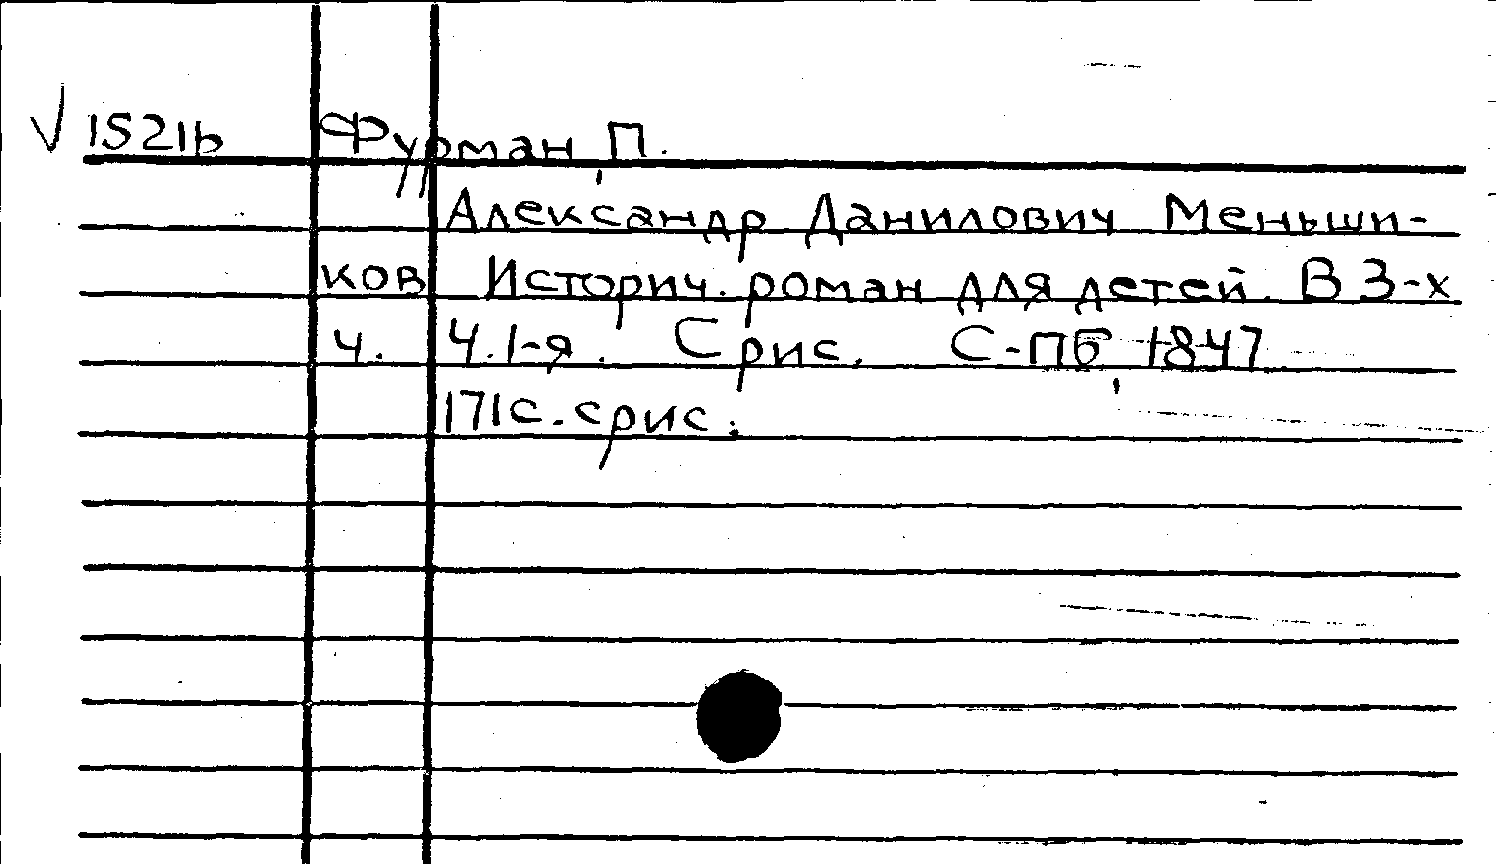 √ 1521b Фурман, П.
Александр Данилович Меньши-
ков Историч. роман для детей. В 3-х
ч. Ч.1-я. С рис. С-Пб, 1847
171с. с рис.